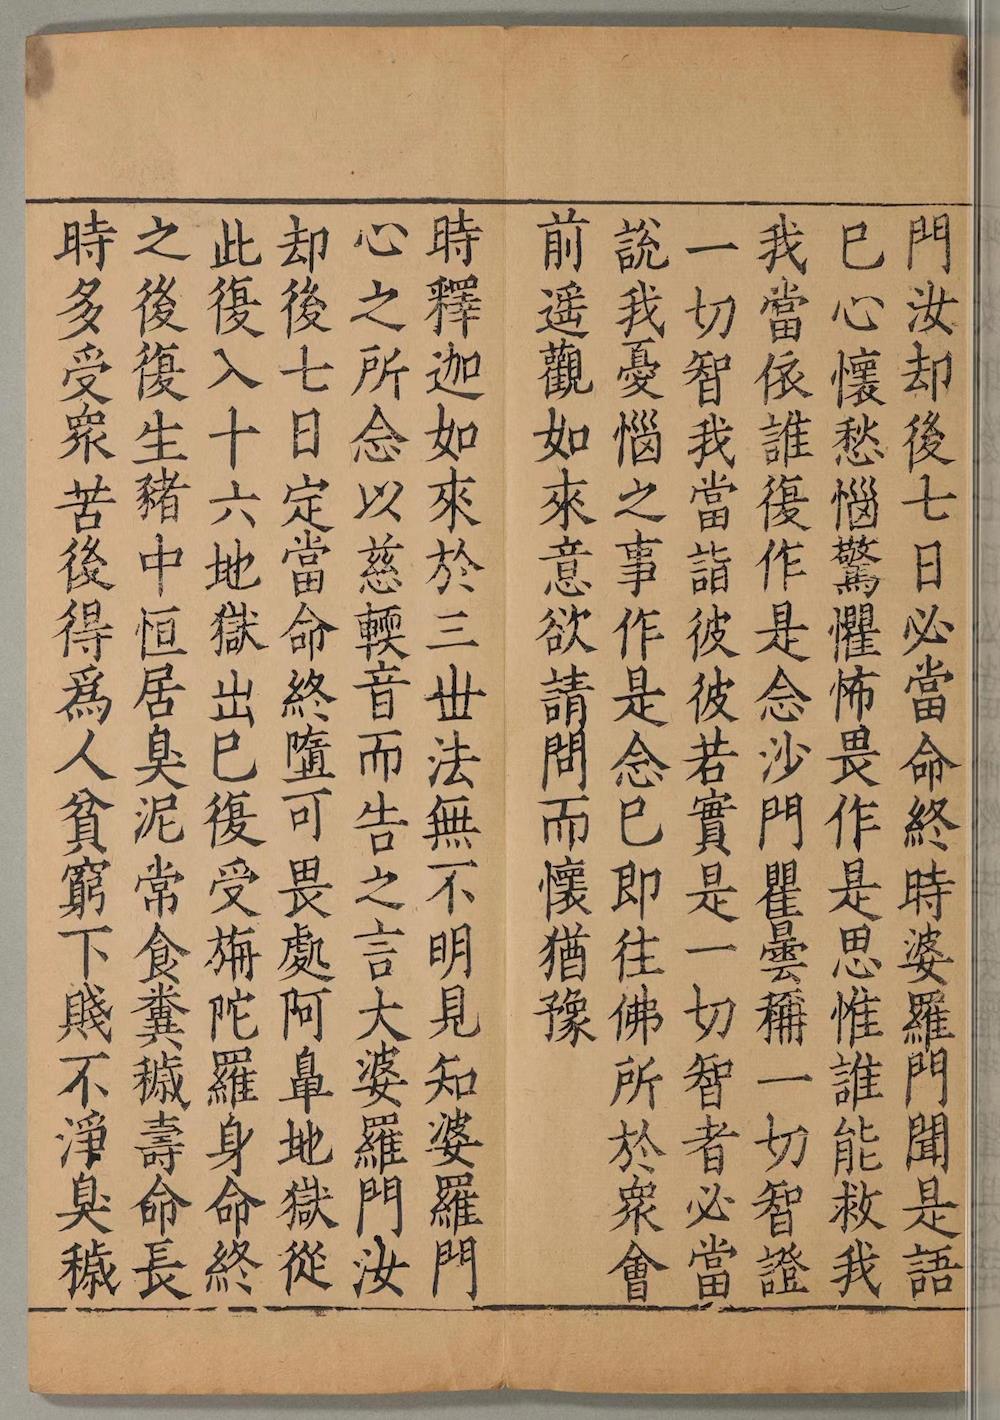 門汝却後七日必當命終時婆羅門聞是語
已心懷愁惱驚懼怖畏作是思惟誰能救我
我當依誰復作是念沙門瞿曇稱一切智證
一切智我當詣彼彼若實是一切智者必當
說我憂惱之事作是念已即往佛所於衆會
前遥觀如來意欲請問而懷猶豫
時釋迦如來於三世法無不明見知婆羅門
心之所念以慈輭音而告之言大婆羅門汝
却後七日定當命終墮可畏處阿鼻地獄從
此復入十六地獄出已復受旃陀羅身命終
之後復生豬中恒居臭泥常食糞穢壽命長
時多受衆苦後得爲人貧窮下賤不淨臭穢